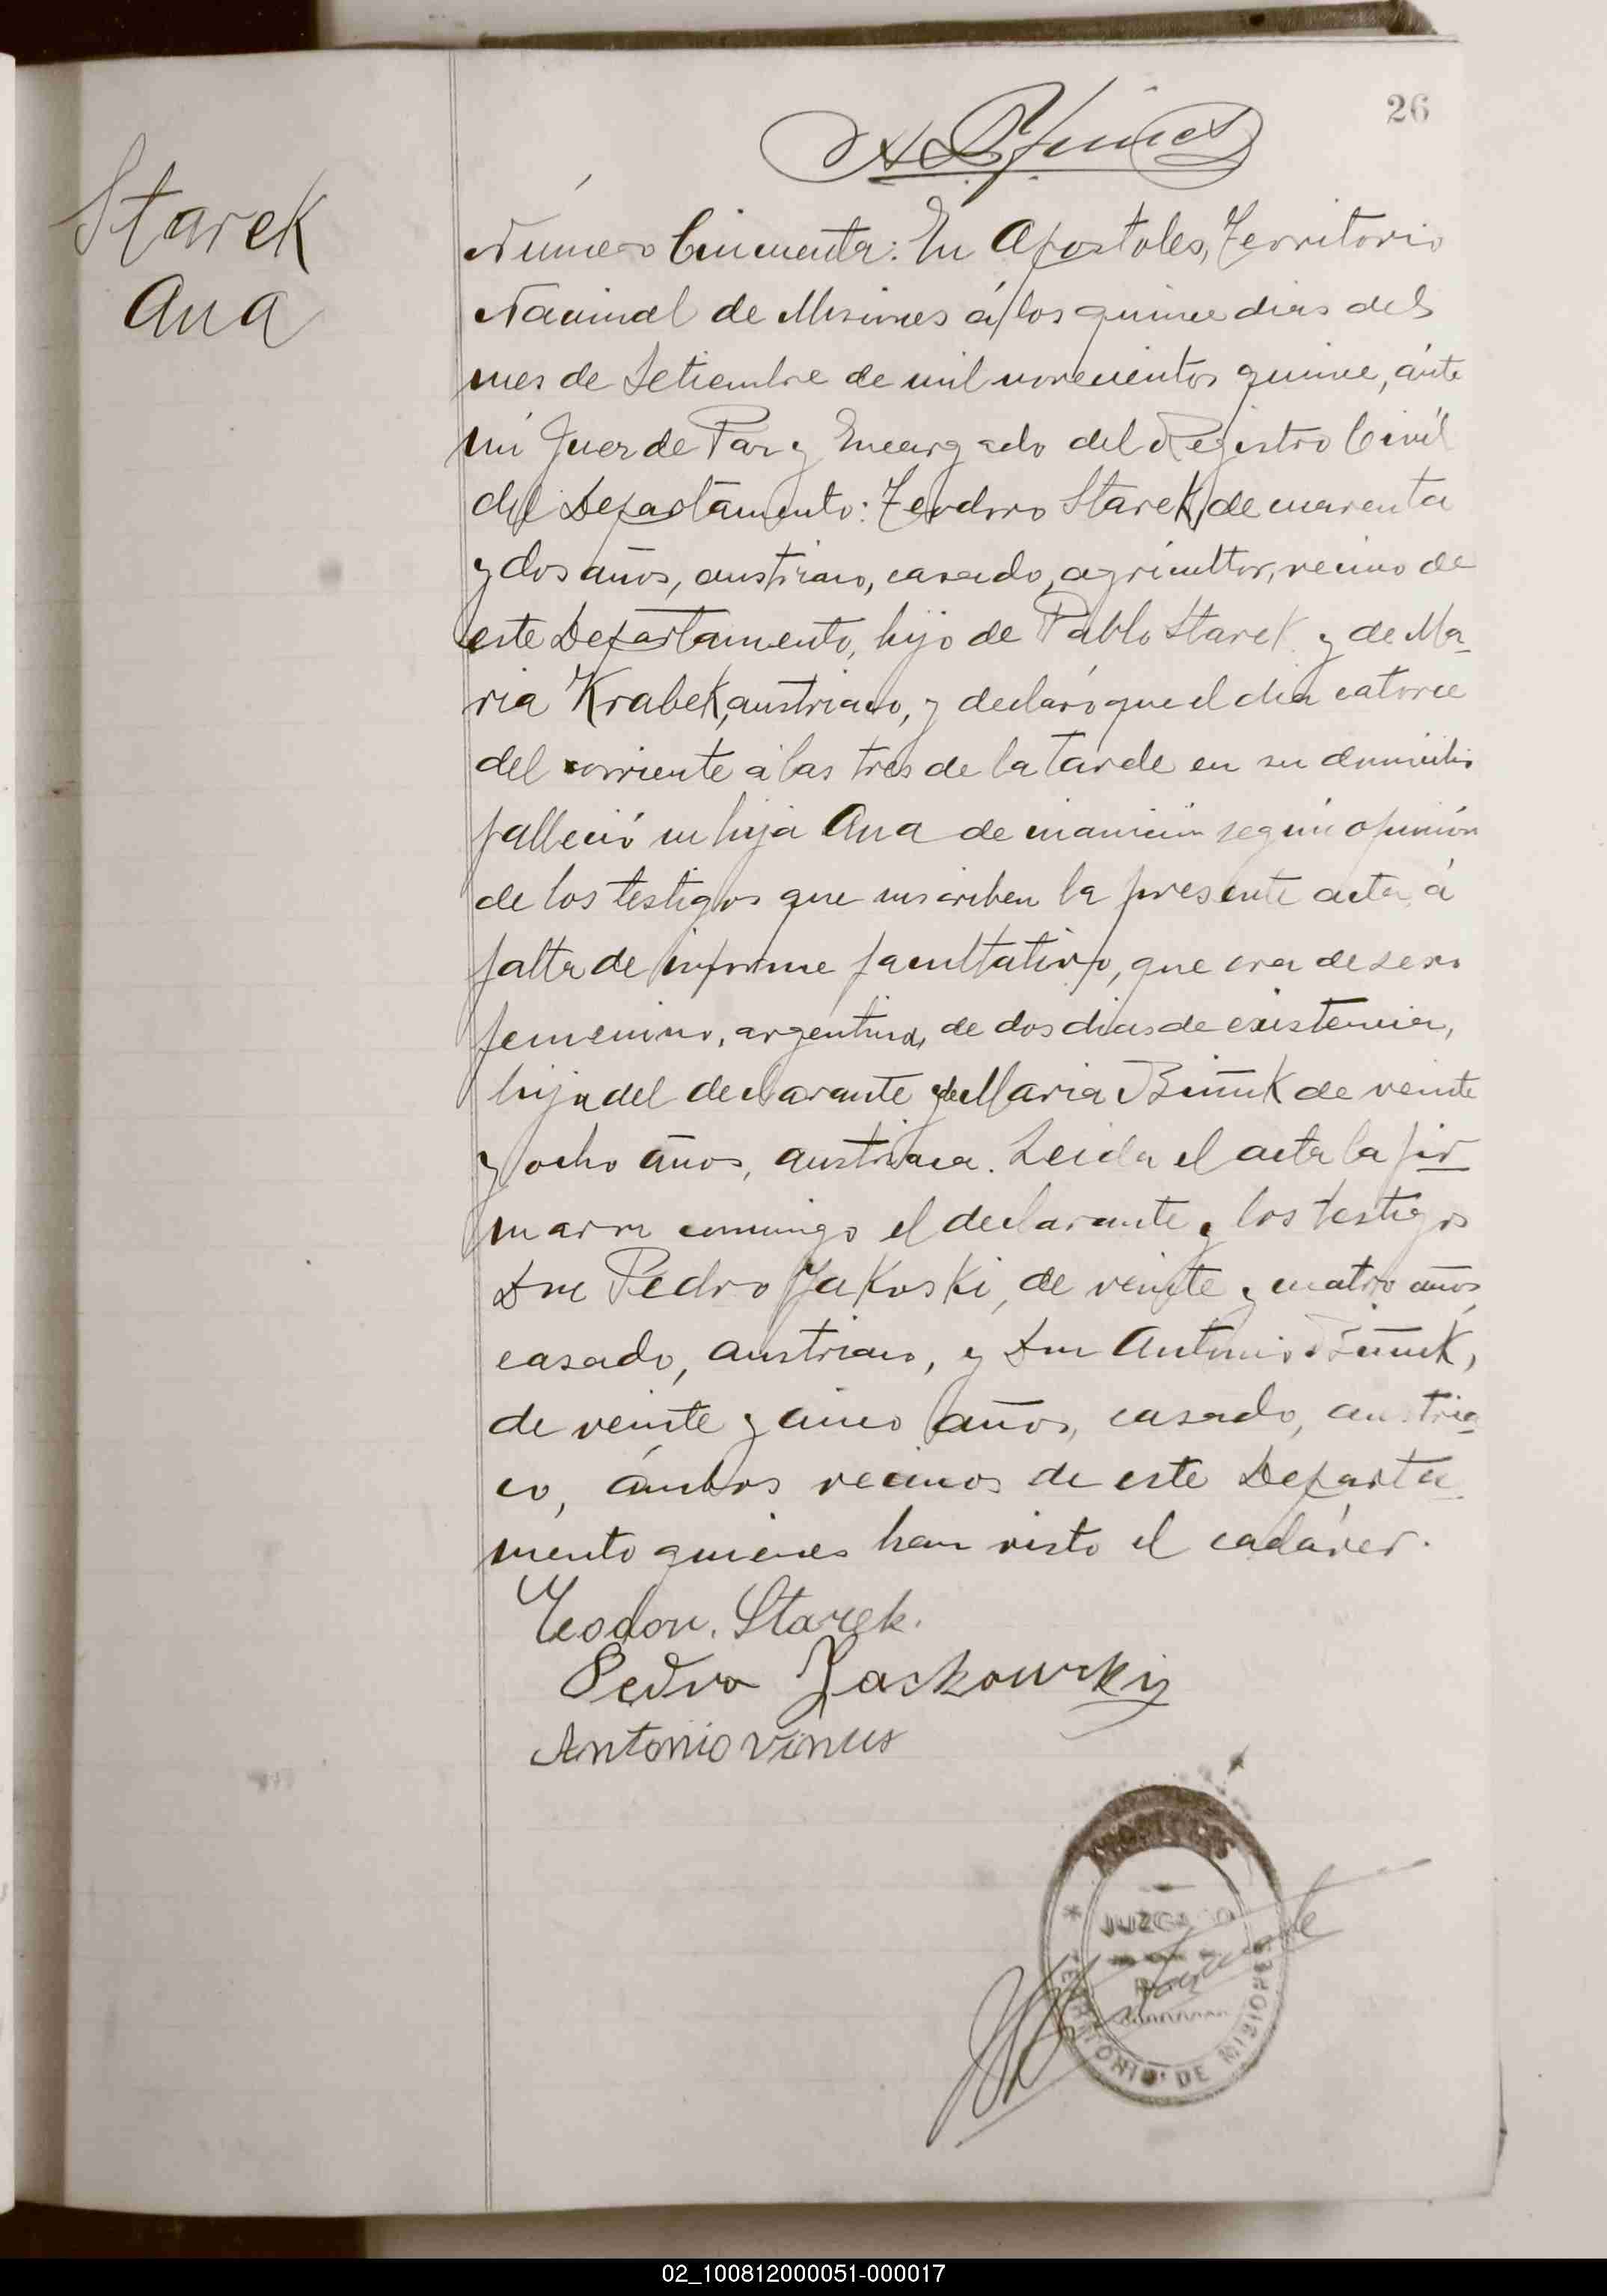 26
Starek
Ana
Número Cincuenta: En Apostoles, Territorio
Nacional de Misiones á los quince dias del
mes de Setiembre de mil novecientos quince, ánte
mi Juez de Paz y Encargado del Registro Civil
del Departamento: Teodoro Starek, de cuarenta
y dos años, austriaco, casado, agricultor, vecino de
este Departamento, hijo de Pablo Starek y de Ma-
ria Krabek, austriaco, y declaró que el dia catorce
del corriente á las tres de la tarde en su domicilio
falleció su hija Ana de inanición según opinión
de los testigos que suscriben la presente acta, á
falta de informe facultativo, que era de sexo
femenino, argentina, de dos dias de existencia,
hija del declarante y de Maria Biñuk de veinte
y ocho años, austriaca. Leida el acta la fir-
maron conmigo el declarante y los testigos
Don Pedro Jakoski, de veinte y cuatro años,
casado, austriaco, y Don Antonio Biñuk,
de veinte y cinco años, casado, austria-
co, ámbos vecinos de este Departa-
mento quienes han visto el cadáver.
Teodor. Starek.
Pedro Jaskowski
Antonio vinus
JUZGADO
TERRITORIO DE MISIONES
02_100812000051-000017